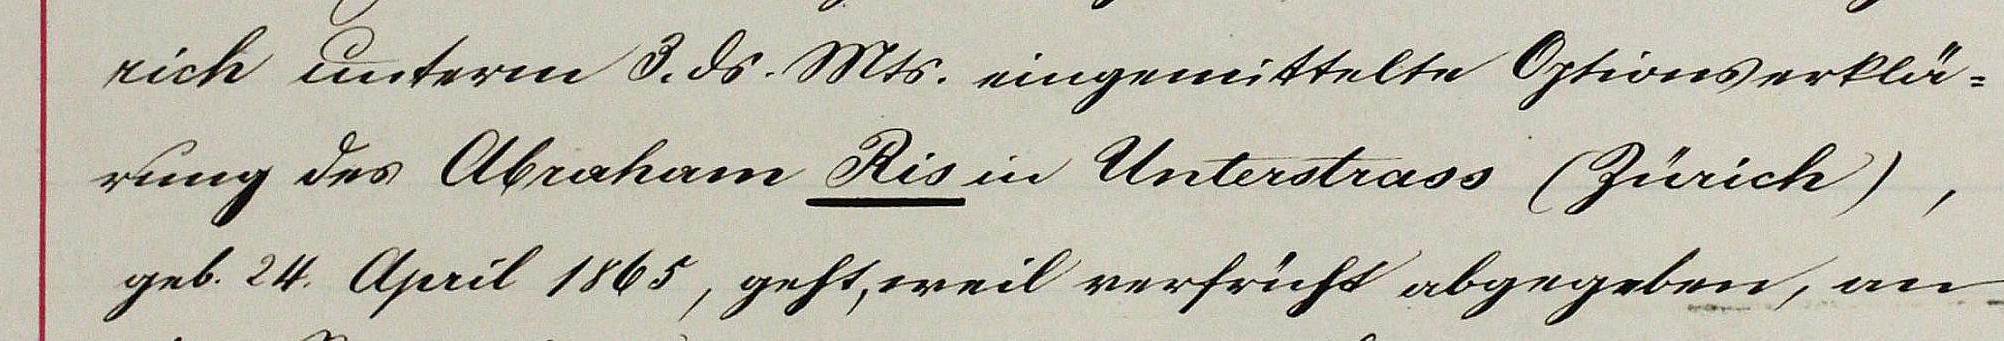 rich unterm 3. ds. Mts. eingemittelte Optionserklä=
rung des Abraham Ris in Unterstrass (Zürich),
geb. 24. April 1865, geht, weil verfrüht abgegeben, an